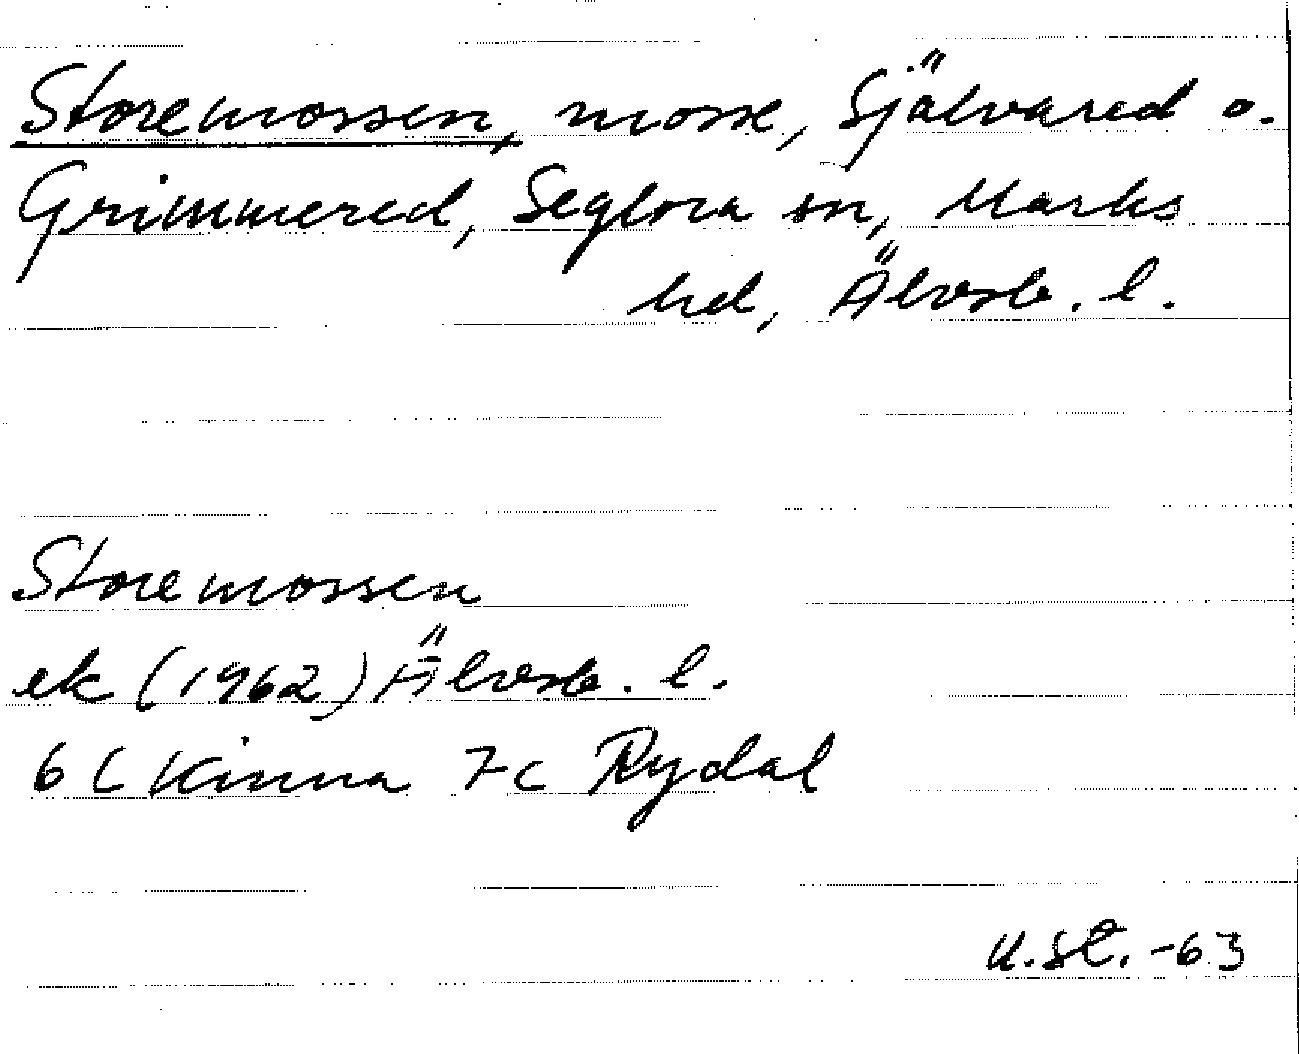 Storemossen, mosse, Självared o.
Grimmered, Seglora sn, Marks
hd, Älvsb. l.
Storemossen
ek (1962) Älvsb. l.
6C Kinna 7C Rydal
U.St. -63